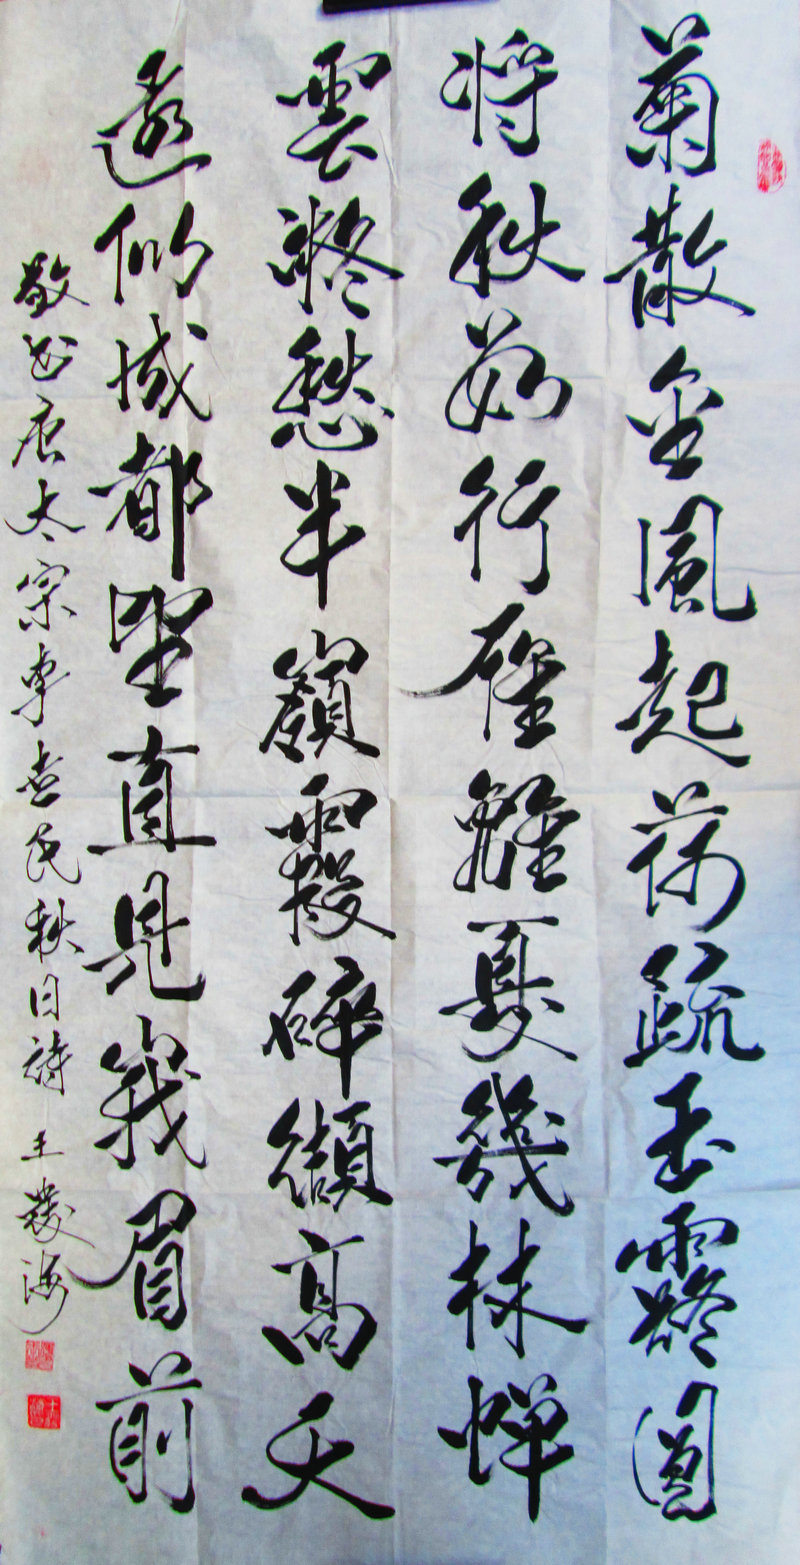 菊散金風起荷疏玉露圓
将秋数行雁離夏幾林蝉
雲凝愁半嶺霞碎纈高天
還似成都望直見峨眉前
敬书唐太宗李世民秋日詩 王海